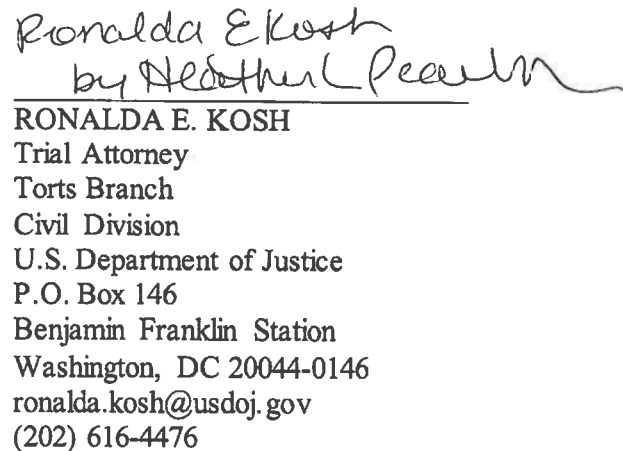 Ronalda E Kosh
by Heather L
RONALDA E. KOSH
Trial Attorney
Torts Branch
Civil Division
U.S. Department of Justice
P.O. Box 146
Benjamin Franklin Station
Washington, DC 20044-0146
ronalda.kosh@usdoj.gov
(202) 616-4476